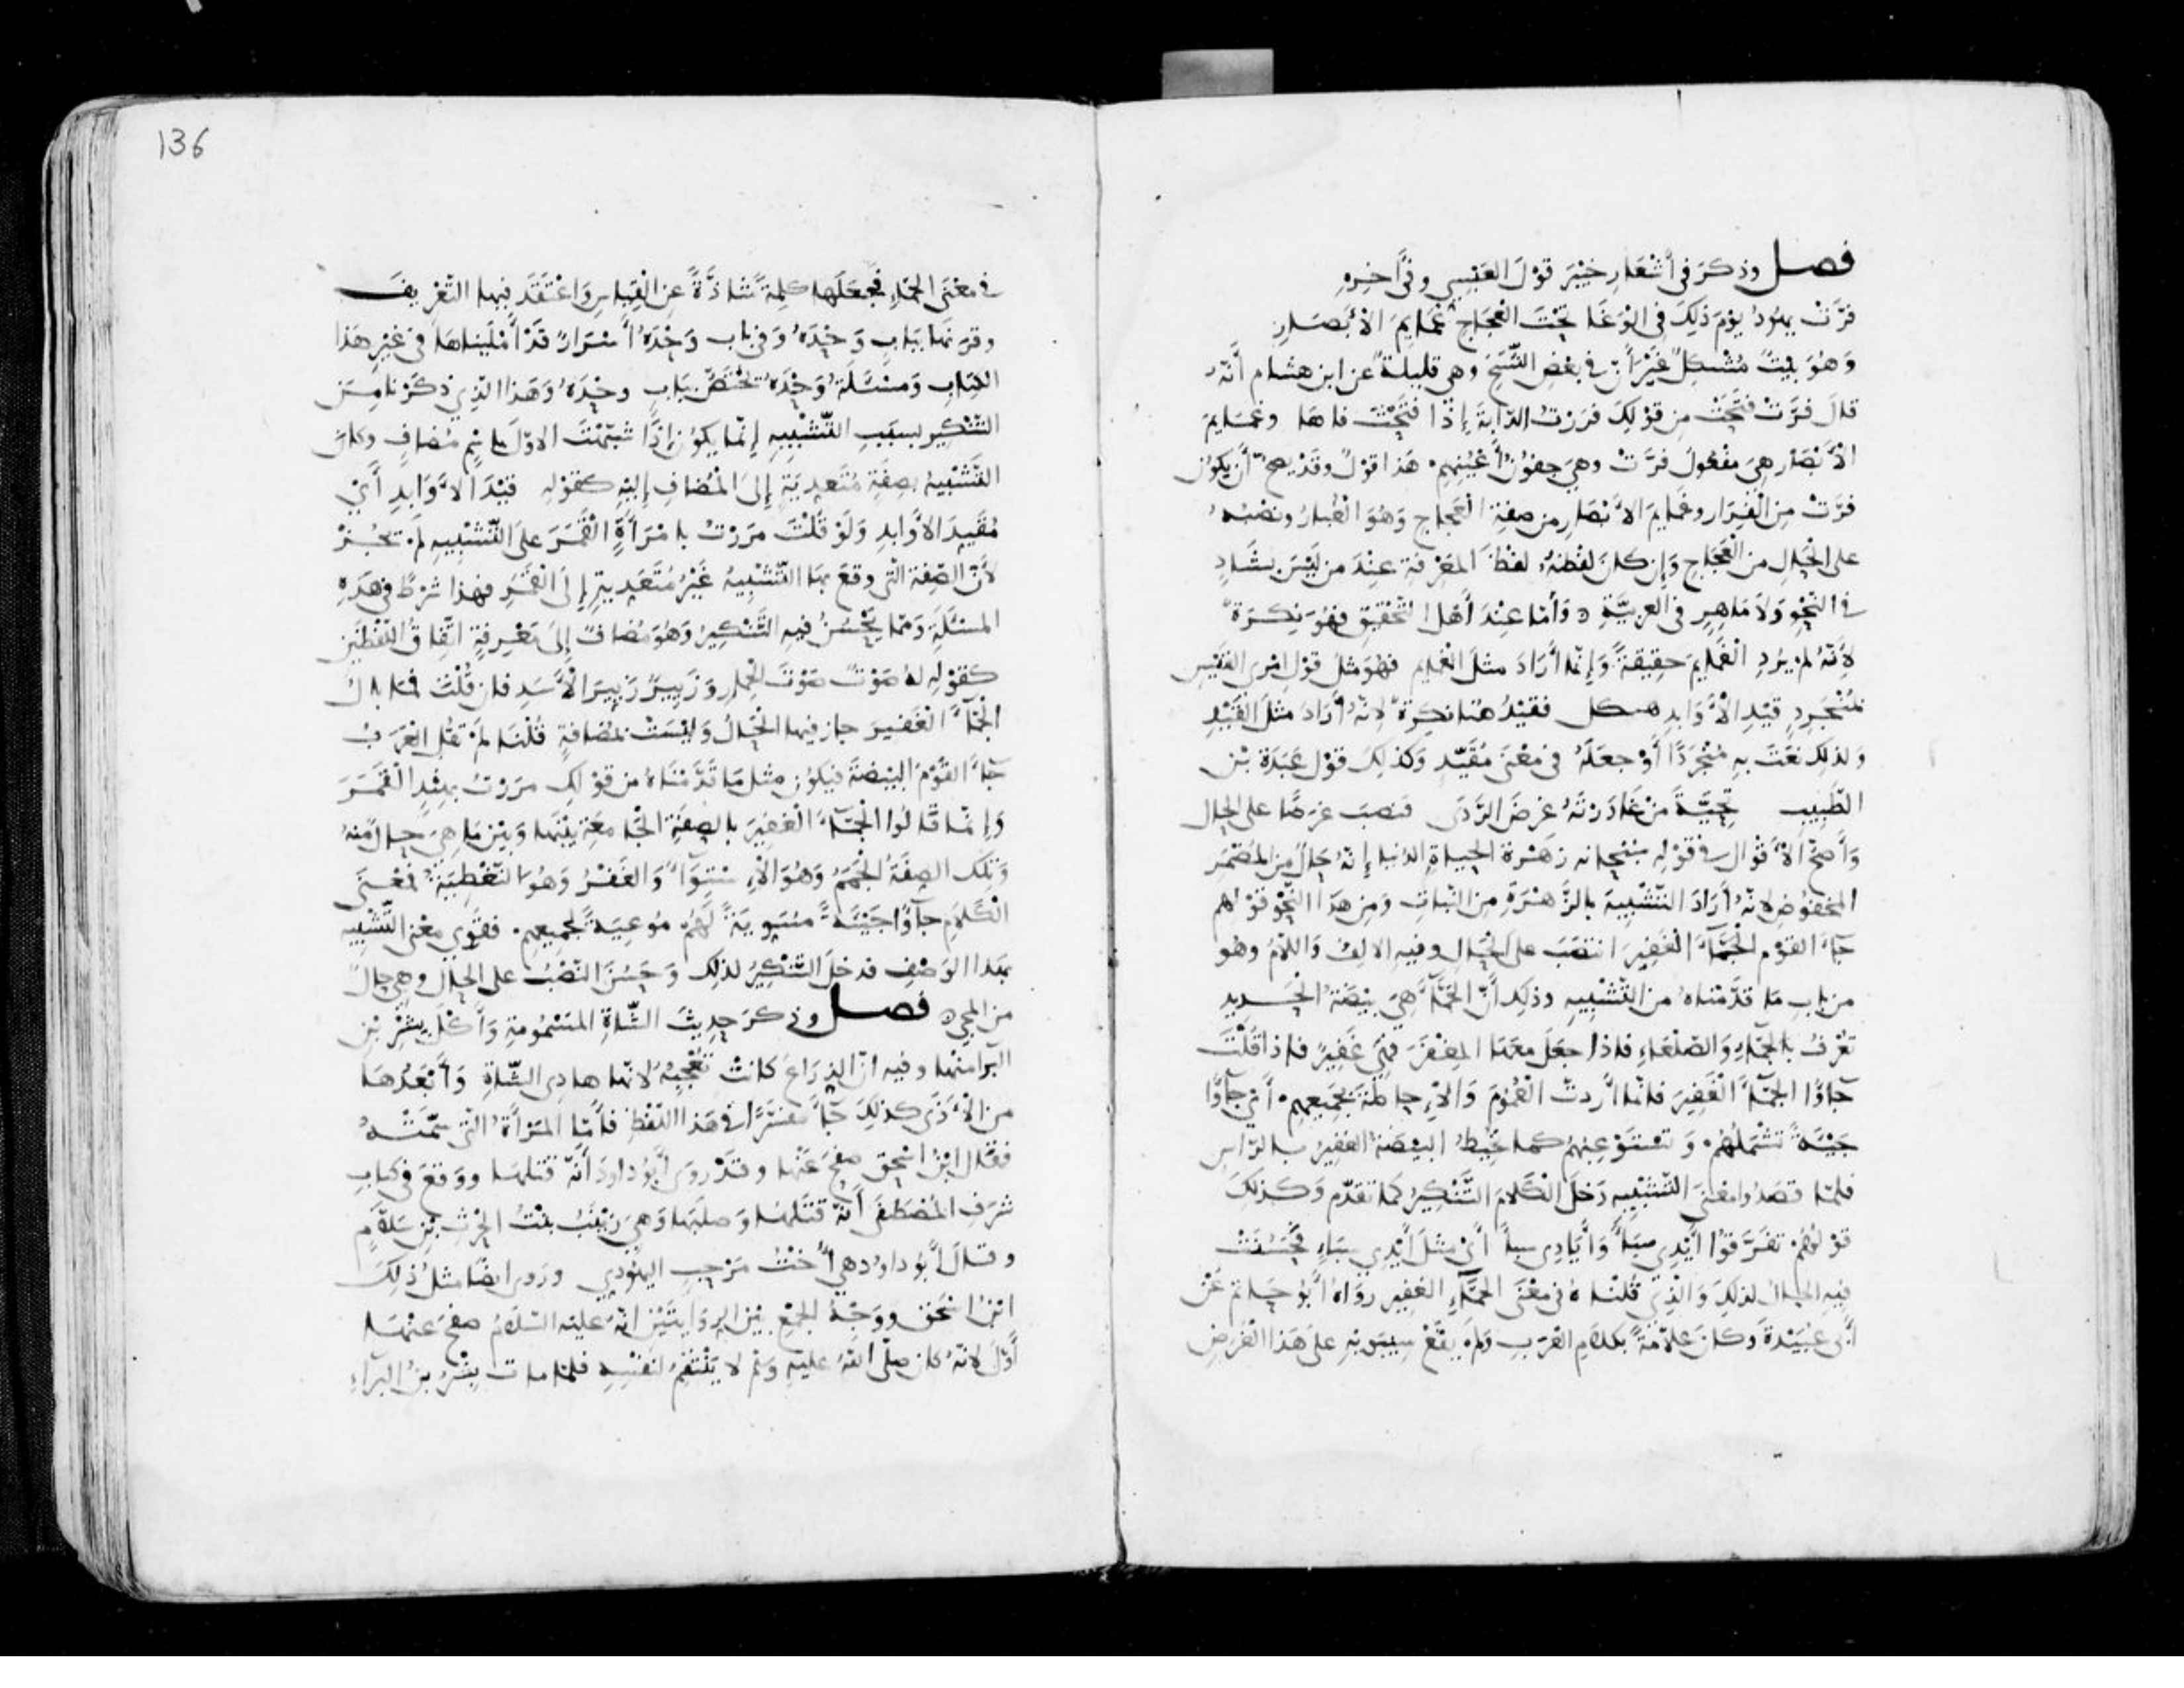 فصل وذكر في أشعار خيبر قول العبسي وفي آخره
فرّت يهود يوم ذلك في الوغا تحت العجاج غمايم الأبصار
وهو بيت مشكل غير أن في بعض النسخ وهي قليلة عن ابن هشام أنه
قال فرّت فتحت من قولك فررت الدابة إذا فتحت فاها وغمايم
الأبصار هي مفعول فرّت وهي جفون أعينهم هذا قول وقد يصح أن يكون
فرّت من الفرار وغمايم الأبصار من صفة العجاج وهو الغبار ونصبه
على الحال من العجاج وإن كان لفظه لفظ المعرفة عند من ليس بشاد
في النحو ولا ماهر في العربية وأما عند أهل التحقيق فهو نكرة
لأنه لم يرد الغمايم حقيقة وإنما أراد مثل الغمايم فهو مثل قول امرئ القيس
بمنجرد قيد الأوابد هيكل فقيد هنا نكرة لأنه أراد مثل القيد
ولذلك نعت به منجردا أو جعله في معنى مقيّد وكذلك قول عبدة بن
الطبيب تحيّة من غادرته غرض الردى فنصب غرضا على الحال
وأصح الأقوال في قوله سبحانه زهرة الحياة الدنيا إنه حال من المضمر
المخفوض لأنه أراد التشبيه بالزهرة من النبات ومن هذا النحو قولهم
جاء القوم الجمّاء الغفير انتصب على الحال وفيه الالف واللام وهو
من باب ما قدّمناه من التشبيه وذلك أن الجمّاء هي بيضة الحديد
تعرف بالجماء والصلعاء فاذا جعل معها المغفر فهي غفير فاذا قلت
جاؤا الجماء الغفير فانما أردت العموم والإحاطة بجميعهم أي جاؤا
جيئة تشملهم وتستوعبهم كما تحيط البيضة الغفير بالراس
فلما قصدوا معنى التشبيه دخل الكلام التنكير كما تقدّم وكذلك
قولهم تفرّقوا أيدي سبأ وأيادي سبأ أي مثل أيدي سباء فحسنت
فيه الحال لذلك والذي قلناه في معنى الجمّاء الغفير رواه أبو حاتم عن
أبي عبيدة وكان علامة بكلام العرب ولم يقع سيبويه على هذا الغرض
في معنى الجماء فجعلها كلمة شاذّة عن القياس واعتقد فيها التعريف
وقرنها بباب وحده وفي باب وحده أسرار قد أمليناها في غير هذا
الكتاب ومسئلة وحده تختص بباب وحده وهذا الذي ذكرنا من
التنكير بسبب التشبيه إنما يكون إذا شبّهت الاوّل باسم مضاف وكان
التشبيه بصفة متعدية إلى المضاف إليه كقوله قيد الأوابد أي
مقيد الأوابد ولو قلت مررت بامرأة القمر على التشبيه لم تجز
لأن الصفة التي وقع بها التشبيه غير متعدية إلى القمر فهذا شرط في هذه
المسئلة ومما يحسن فيه التنكير وهو مضاف إلى معرفة اتفاق اللفظين
كقوله له صوت صوت الحمار وزبير زبير الأسد فان قلت فما بال
الجماء الغفير جاز فيها الحال وليست بمضافة قلنا لم تقل العرب
جاء القوم البيضة فيكون مثل ما قدّمناه من قولك مررت بهند القمر
وإنما قالوا الجمّاء الغفير بالصفة الجامعة بينها وبين ما هي حال منه
وتلك الصفة الجمم وهو الاستواء والغفر وهو التغطية فمعنى
الكلام جاؤا جيئة مستوية لهم موعبة لجميعهم فقوي معنى التشبيه
بهذا الوصف فدخل التنكير لذلك وحسن النصب على الحال وهي حال
من المجيء فصل وذكر حديث الشاة المسمومة وأكل بشر بن
البرا منها وفيه ان الذراع كانت تعجبه لانها هادي الشاة وأبعدها
من الأذى كذلك جاء مفسّرا في هذا اللفظ فأما المرأة التي سمّته
فقال ابن اسحق صفح عنها وقد روى أبو داود أنه قتلها ووقع في كتاب
شرف المصطفى أنه قتلها وصلبها وهي زينب بنت الحرث بن سلّام
وقال أبو داود هي أخت مرحب اليهودي وروى ايضا مثل ذلك
ابن اسحق ووجه الجمع بين الروايتين انه عليه السلام صفح عنها
أوّل لانه كان صلّى الله عليه وسلم لا ينتقم لنفسه فلما مات بشر بن البراء
136